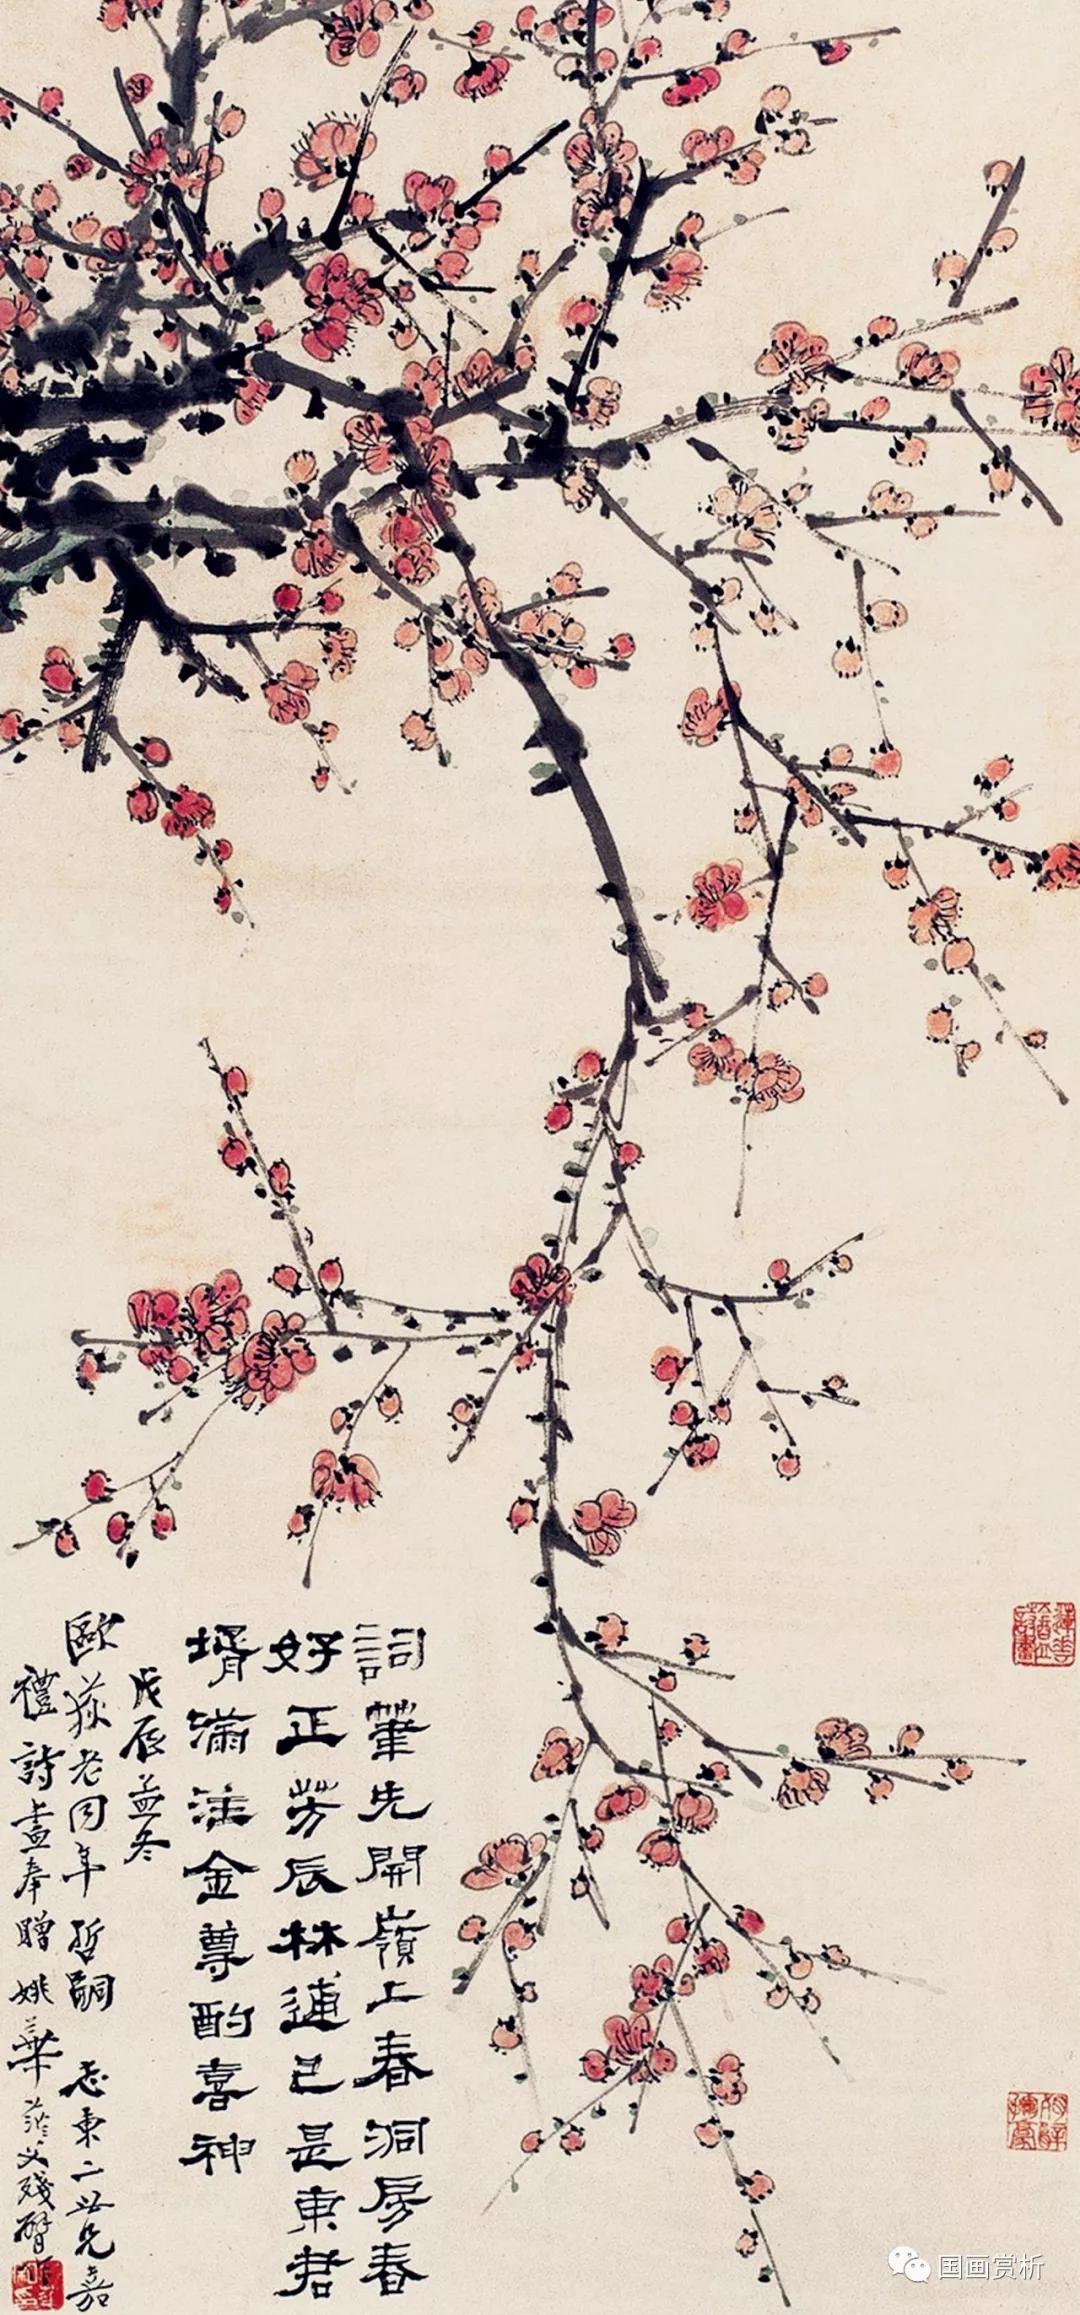 詞華先開嶺上春洞房春
好正芳辰林逋已是東君
壻滿注金尊酌喜神
戊辰孟冬
歐荻老同年哲嗣志東二世兄嘉
禮詩畫奉贈姚華茫父殘臂作
国画赏析